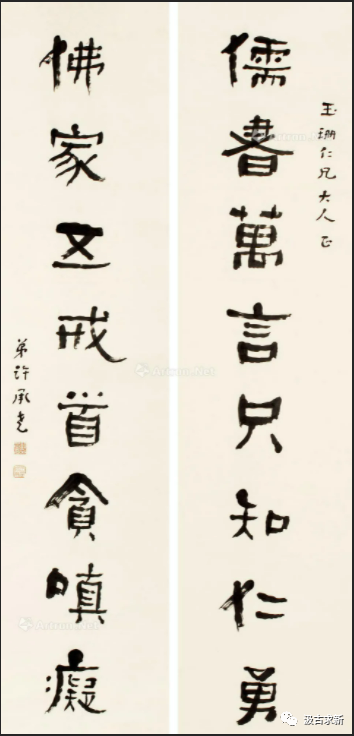 玉珊仁兄大人正
儒書萬言只知仁勇
佛家五戒首貪嗔癡
弟許承堯
汲古求新